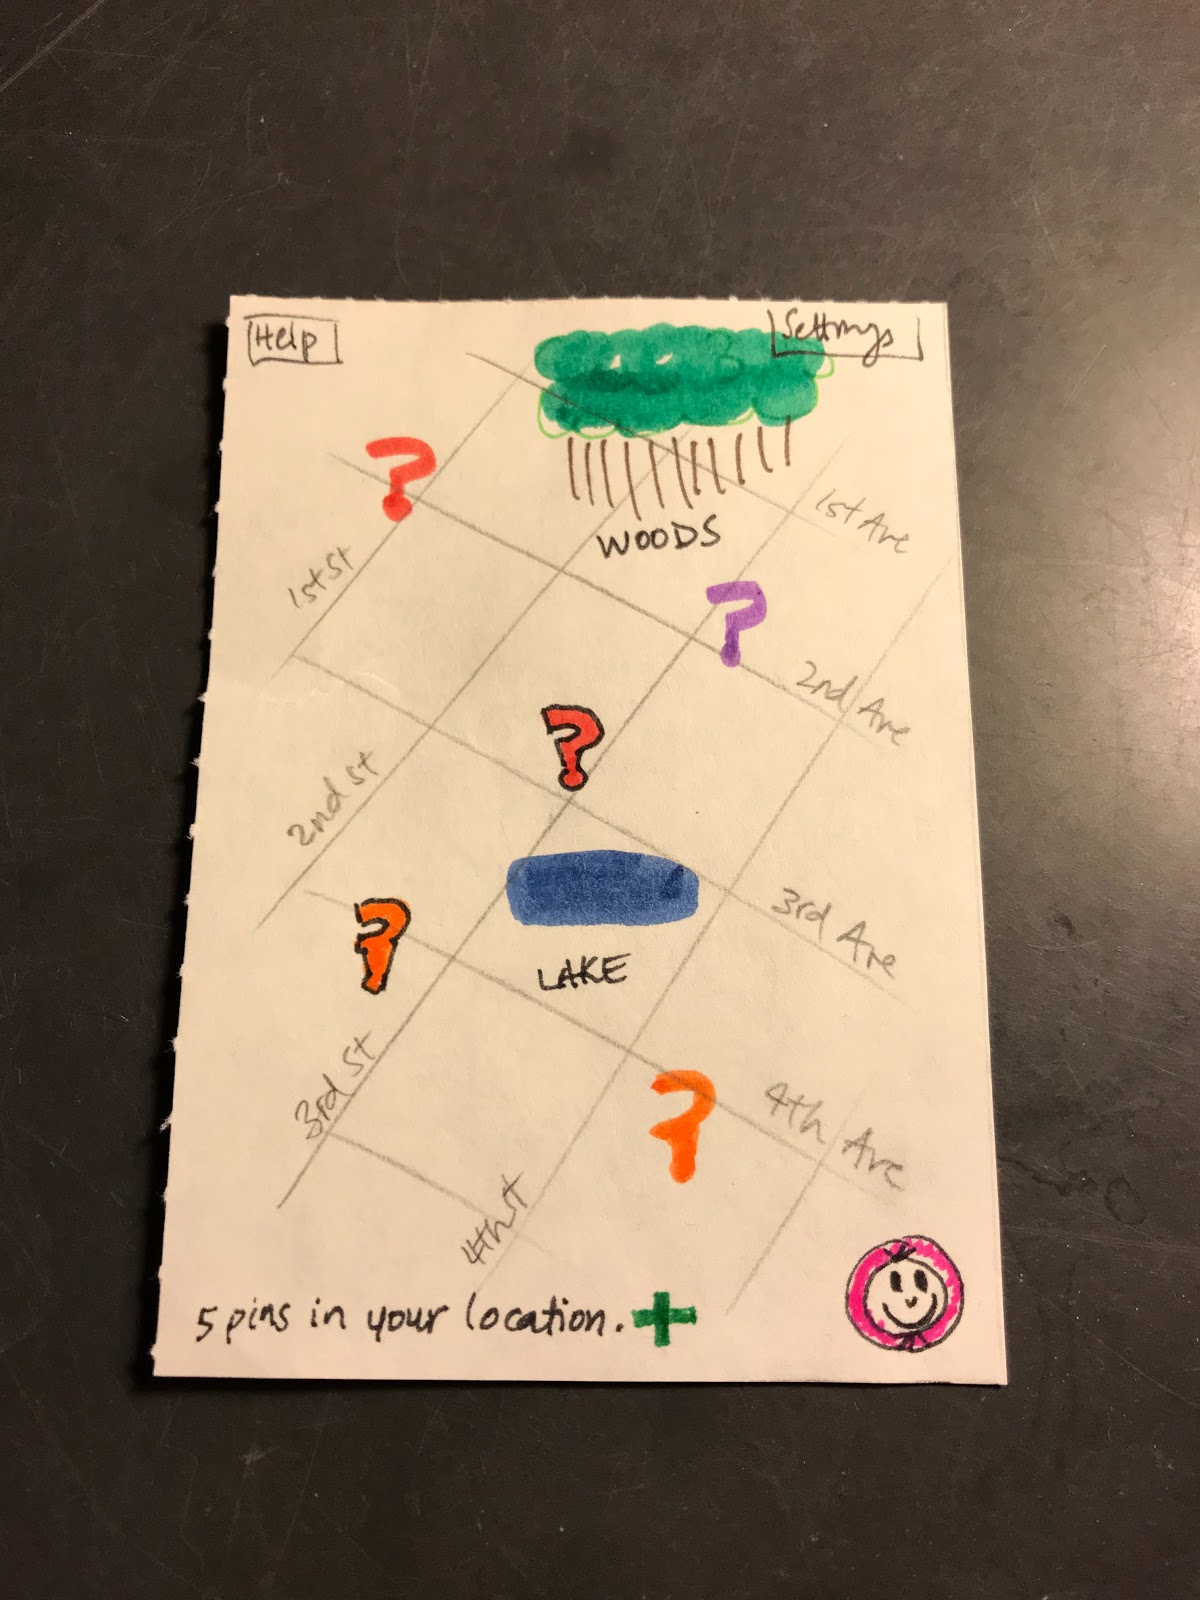 Help
Settings
1st Ave
WOODS
1st St
2nd Ave
2nd St
3rd Ave
LAKE
3rd St
4th Ave
4th St
5 pins in your location. +